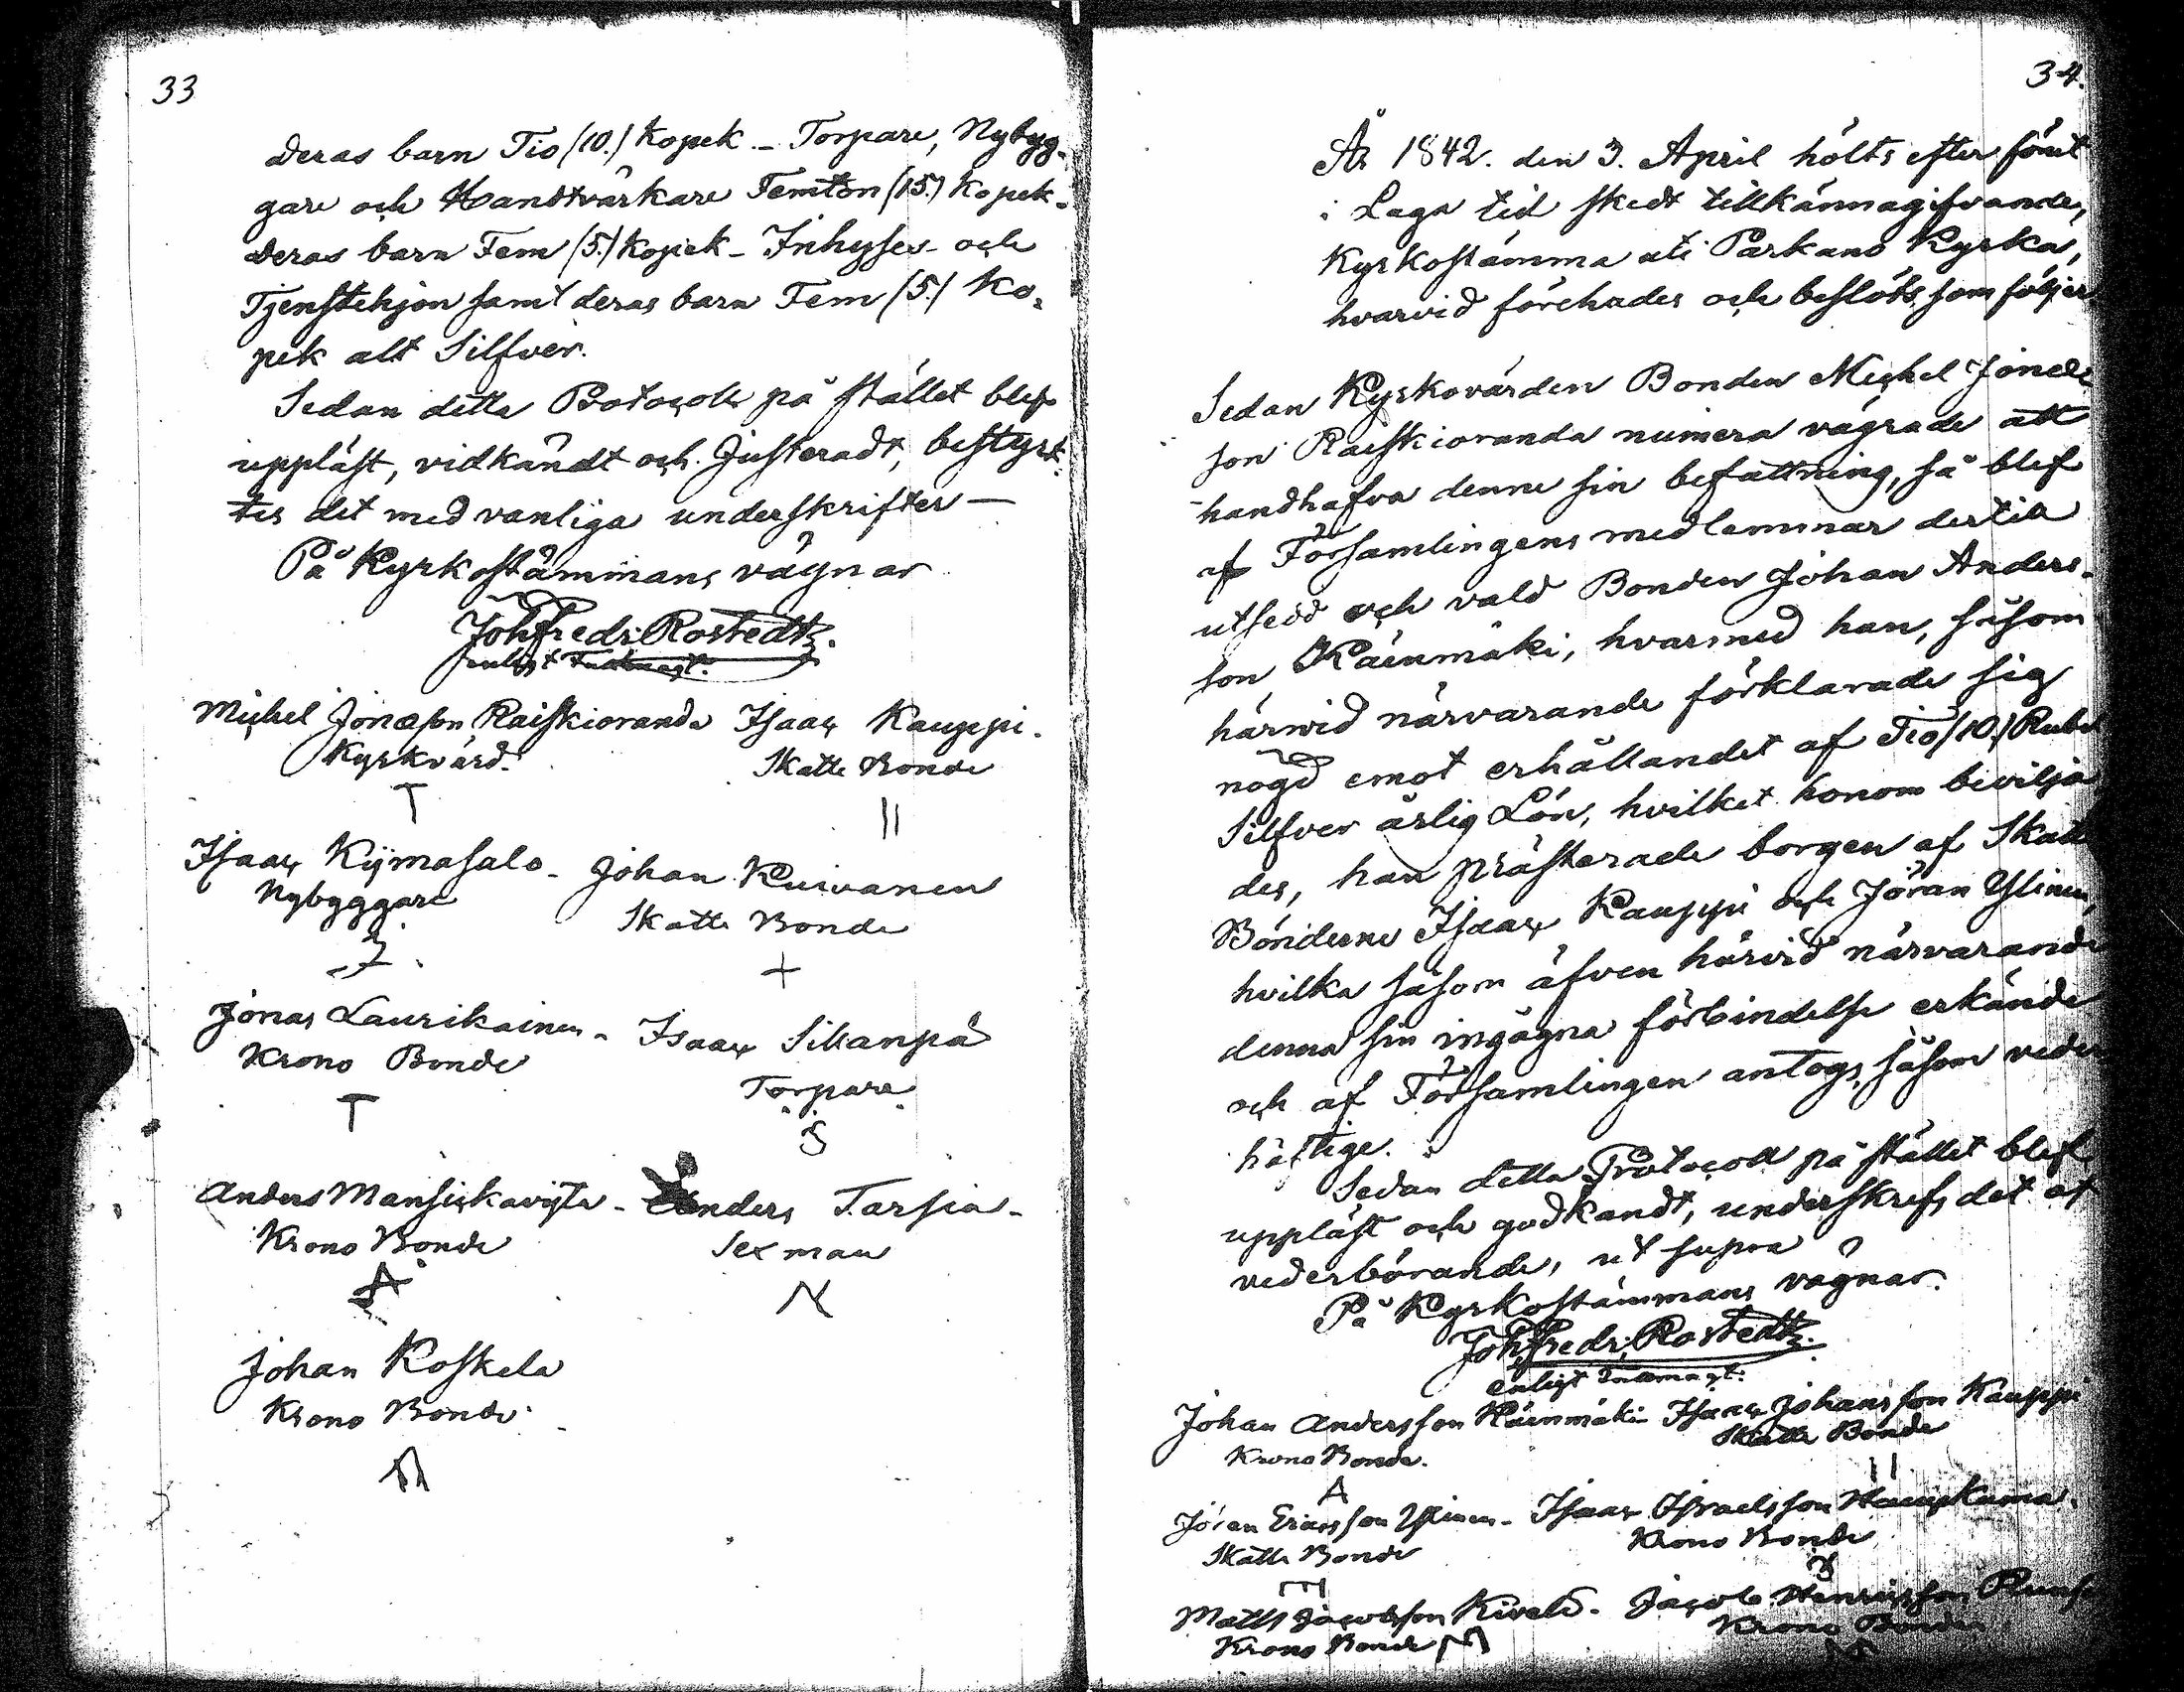 33
deras barn Tio (10.) Kopek - Torpare, Nybyg-
gare och Handtvärkare Femton (15.) Kopek -
deras barn Fem (5.) Kopek - Inhyses- och
Tjenstehjon samt deras barn Fem (5.) Ko-
pek alt Silfver.
Sedan detta Protocoll på stället blef
uppläst, vidkändt och Justeradt, bestyrk-
tes det med vanliga underskrifter —
På Kyrkostämmans vägnar
Joh. Fredr. Rostedt.
enligt Fullmagt.
Michel Jonasson Raiskioranda Isaac Kauppi.
Kyrkvärd. Skatte Bonde
T II
Isaac Kijmasalo - Johan Kuivanen
Nybyggare Skatte Bonde
+
Jonas Laurikainen - Isaac Sillanpä
Krono Bonde Torpare
T
Anders Mansickaviita - Anders Tarsia -
Krono Bonde Sexman
A N
Johan Koskela
Krono Bonde
34.
År 1842. den 3. April hölts efter förut
i Laga tid skedt tillkännagifvande,
Kyrkostämma uti Parkano Kyrka,
hvarvid förehades och beslöts, som följer
Sedan Kyrkovärden Bonden Michel Jonas
son Raiskioranda numera vägrade att
handhafva denne sin befattning, så blef
af Församlingens medlemmar dertill
utsedd och vald Bonden Johan Anders-
son Käenmäki, hvarmed han, såsom
härwid närvarande förklarade sig
nögd emot erhållandet af Tio (10.) Rubel
Silfver årlig Lön, hvilket honom bevilja
des, han præsterade borgen af Skatte
Bönderne Isaac Kauppi och Jöran Ylinen,
hvilka såsom äfven härvid närvarande
denna sin ingågna förbindelse erkände
och af Församlingen antogs såsom veder
häftige.
Sedan detta Protocoll på stället blef
uppläst och godkändt, underskrefs det af
vederbörande, ut supra
På Kyrkostämmans vägnar.
Joh. Fredr. Rostedt.
enligt Fullmagt.
Johan Andersson Käenmäki Isaac Johansson Kauppi
Krono Bonde. Skatte Bonde
A II
Jöran Ericsson Ylinen - Isaac Israelsson
Skatte Bonde Krono Bonde
Matts Jacobsson Kivelä - Jacob Henricsson
Krono Bonde Krono Bonde